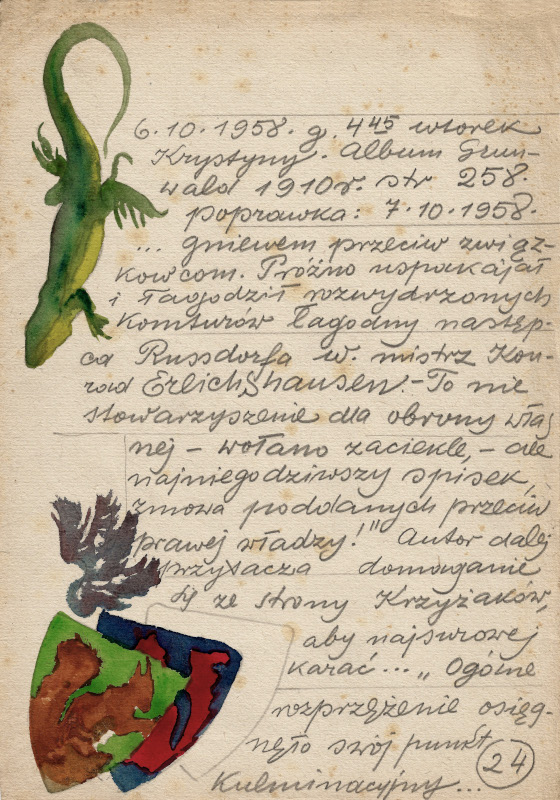 6.10.1958. g. 4⁴⁵ wtorek
Krystyny. Album Grun-
wald 1910r. str 258.
poprawka: 7.10.1958.
... gniewem przeciw związ-
kowcom. Próżno uspakajał
i łagodził rozwydrzonych
komturów łagodny następ-
ca Russdorfa w. mistrz Kon-
rad Erlichshausen. - To nie
stowarzyszenie dla obrony włas
nej - wołano zaciekle, - ale
najniegodziwszy spisek,
zmowa poddanych przeciw
prawej władzy!" Autor dalej
przytacza domaganie
się ze strony Krzyżaków,
aby najsurowej
karać... „Ogólne
rozprzężenie osięg-
nęło swój punkt
kulminacyjny...
24